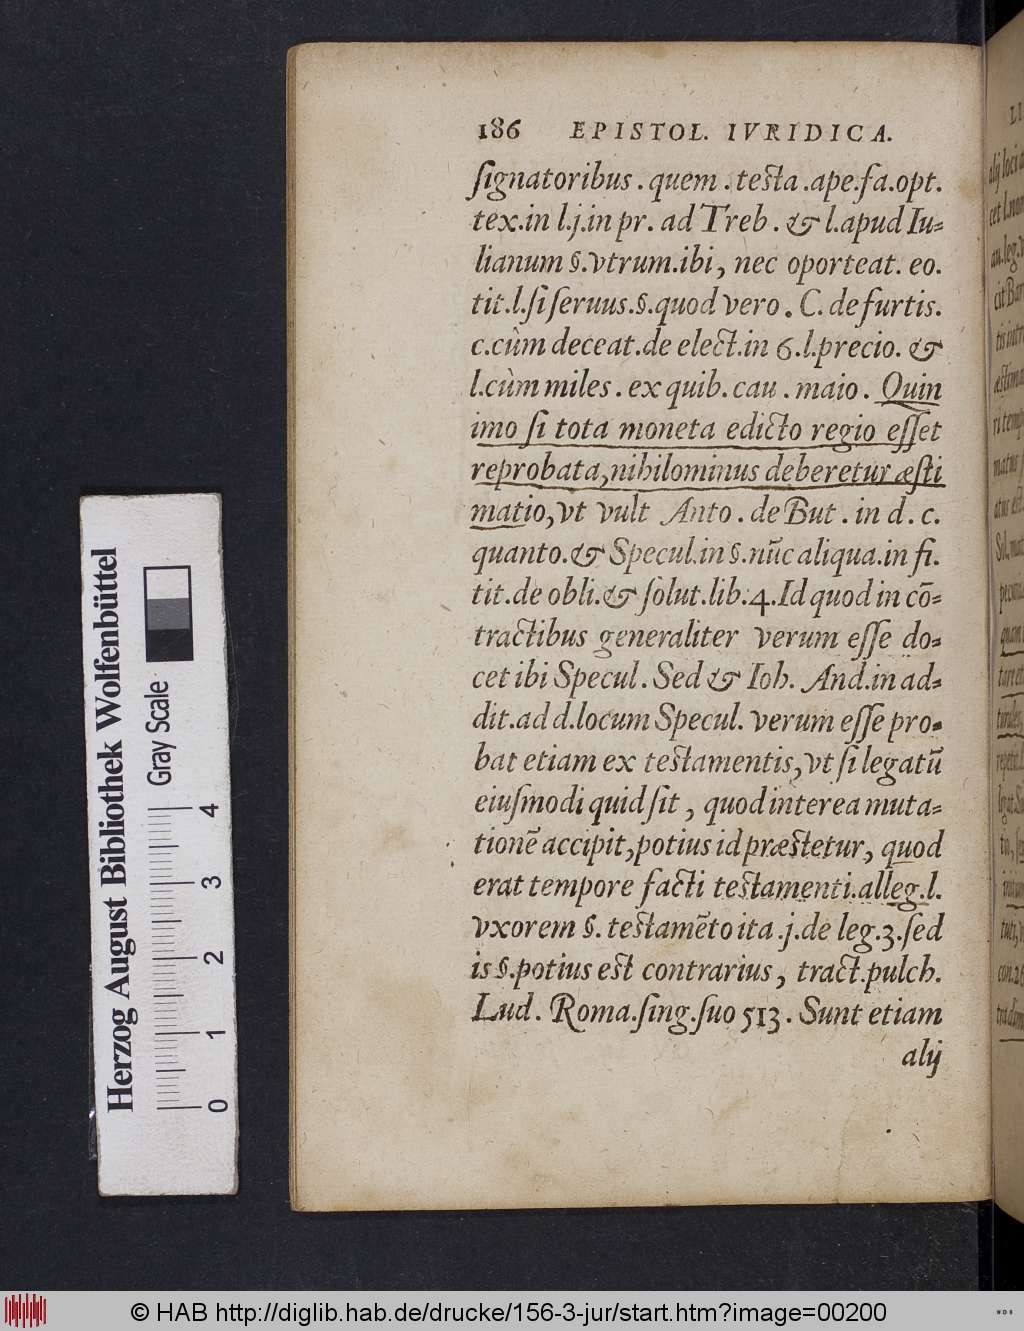 186 EPISTOL. IVRIDICA.
ſignatoribus. quem. teſta.ape.fa.opt.
tex.in l.j.in pr. ad Treb. & l.apud Iu-
lianum §.vtrum.ibi, nec oporteat. eo.
tit.l.ſi ſeruus.§.quod vero. C. de furtis.
c.cùm deceat.de elect.in 6.l.precio. &
l.cùm miles. ex quib. cau. maio. Quin
imo ſi tota moneta edicto regio eſſet
reprobata, nihilominus deberetur æſti
matio, vt vult Anto. de But. in d. c.
quanto.& Specul.in §.nūc aliqua.in fi.
tit.de obli.& ſolut.lib.4. Id quod in cō-
tractibus generaliter verum eſſe do-
cet ibi Specul. Sed & Ioh. And.in ad-
dit.ad d.locum Specul. verum eſſe pro-
bat etiam ex teſtamentis, vt ſi legatū
eiuſmodi quid ſit, quod interea muta-
tionē accipit, potius id præſtetur, quod
erat tempore facti teſtamenti.alleg.l.
vxorem §. teſtamēto ita.j.de leg.3.ſed
is §.potius eſt contrarius, tract.pulch.
Lud. Roma.ſing.ſuo 513. Sunt etiam
alij
LI
alij loci
cet l.non
au.leg.
cit Bar
tis intr
æſtima
ri temp
matus
atus eſt
Sol. mat
pecuni
quam
tare et
repetit.
legat.
con.
Herzog August Bibliothek Wolfenbüttel
Gray Scale
0 1 2 3 4
© HAB http://diglib.hab.de/drucke/156-3-jur/start.htm?image=00200
WDB